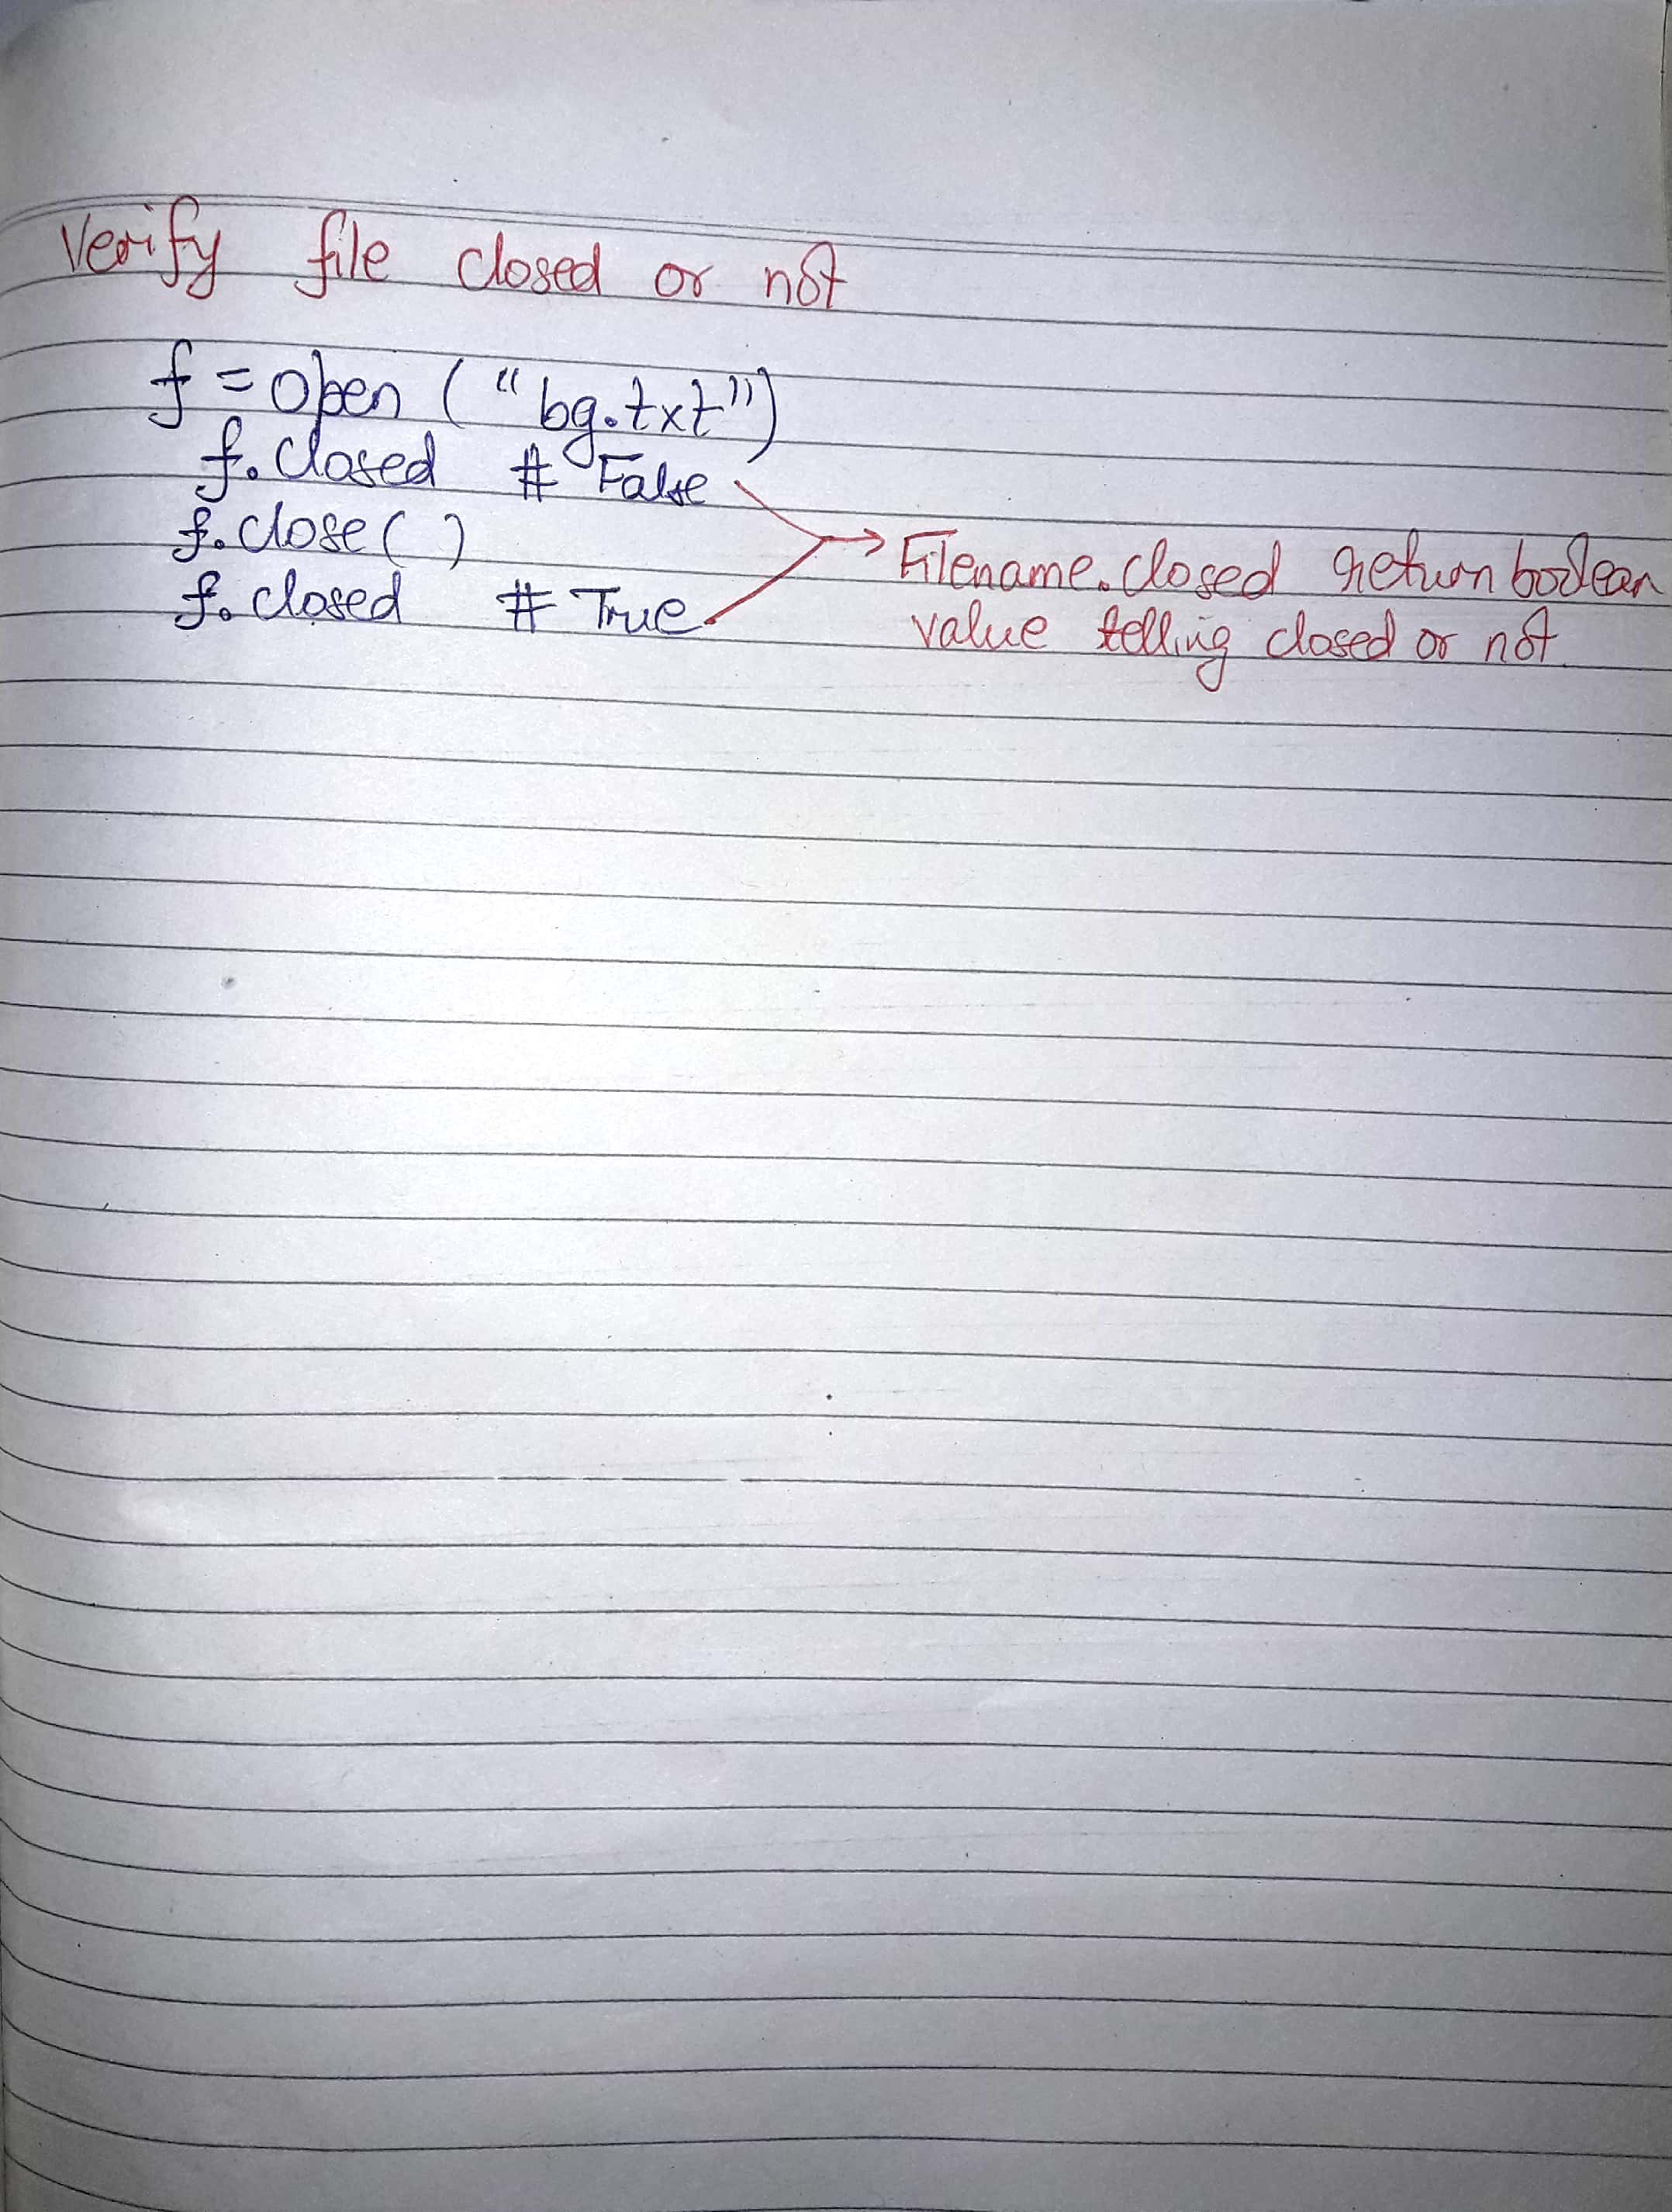 Verify file closed or not
f = open ("bg.txt")
f.closed # False
f.close()
f.closed # True
→ Filename.closed return boolean
value telling closed or not